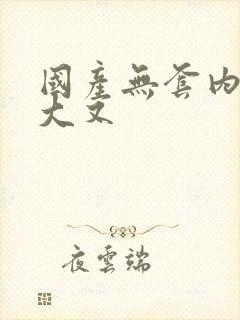 國產無套内
大叉
夜雲端